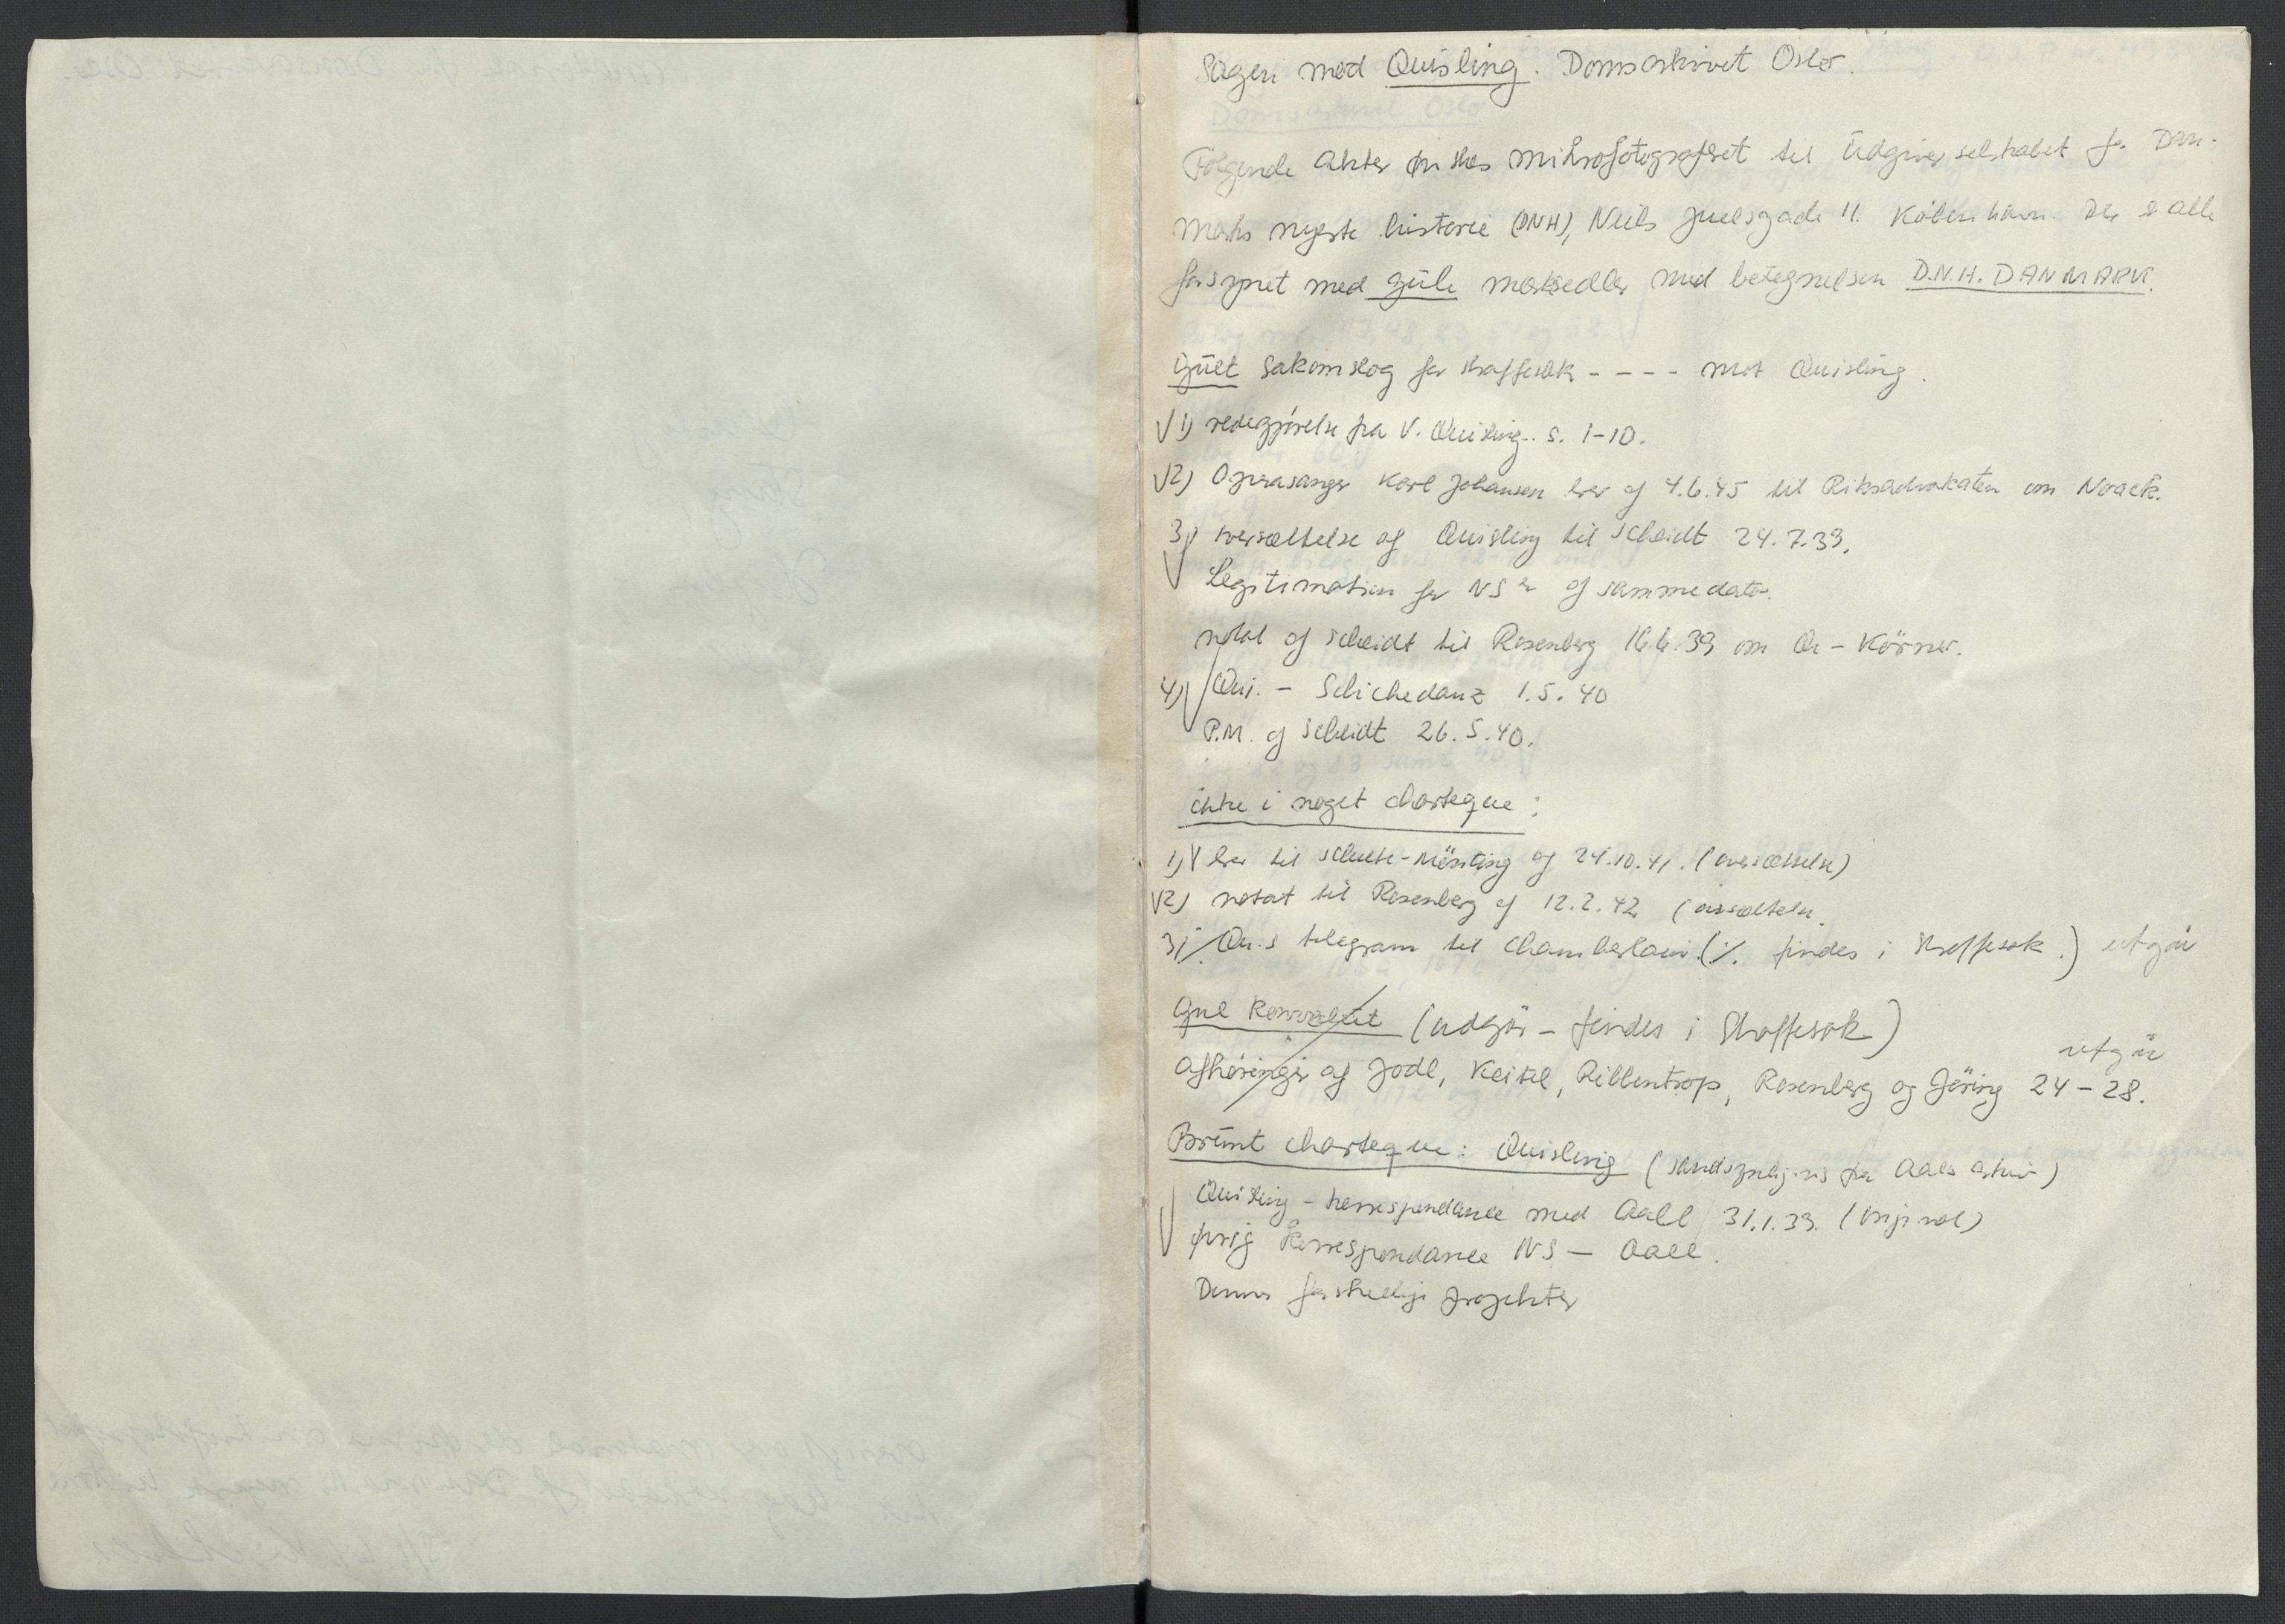 Sagen mod Quisling. Domsarkivet Oslo.
Følgende akter ønskes mikrofotograferet til Udgiverselskabet for Dan-
marks nyeste historie (DNH), Niels Juelsgade 11. København. Der er alle
forsynet med gule mærkesedler med betegnelsen D.N.H. DANMARK.
Gult sakomslag for straffesak - - - - mot Quisling.
√1) redegjørelse fra V. Quisling. s. 1-10.
√2) Operasanger Karl Johansen brev af 4.6.45 til Riksadvokaten om Noack.
3) oversættelse af Quisling til Scheidt 24.7.39.
Legitimation for NS af samme dato.
notat af Scheidt til Rosenberg 16.6.39 om Qu - Körner.
4) √ Qui. - Schickedanz 1.5.40
P.M. af Scheidt 26.5.40.
ikke i noget charteque:
1) √ brev til Schulte-Mönting af 24.10.41. (oversættelse)
√2) notat til Rosenberg af 12.2.42 (oversættelse.
3) Qu.s telegram til Chamberlain (·/. findes i Straffesak.) utgår
Gul konvolut (udgår - findes i Straffesak)
utgår
Afhøringer af Jodl, Keitel, Ribbentrop, Rosenberg og Göring 24-28.
Brunt charteque: Quisling (sandsynligvis fra Aalls arkiv)
Quisling - korrespondance med Aall 31.1.39. (original)
√ øvrig korrespondance NS - Aall.
Dennes forskellige projekter